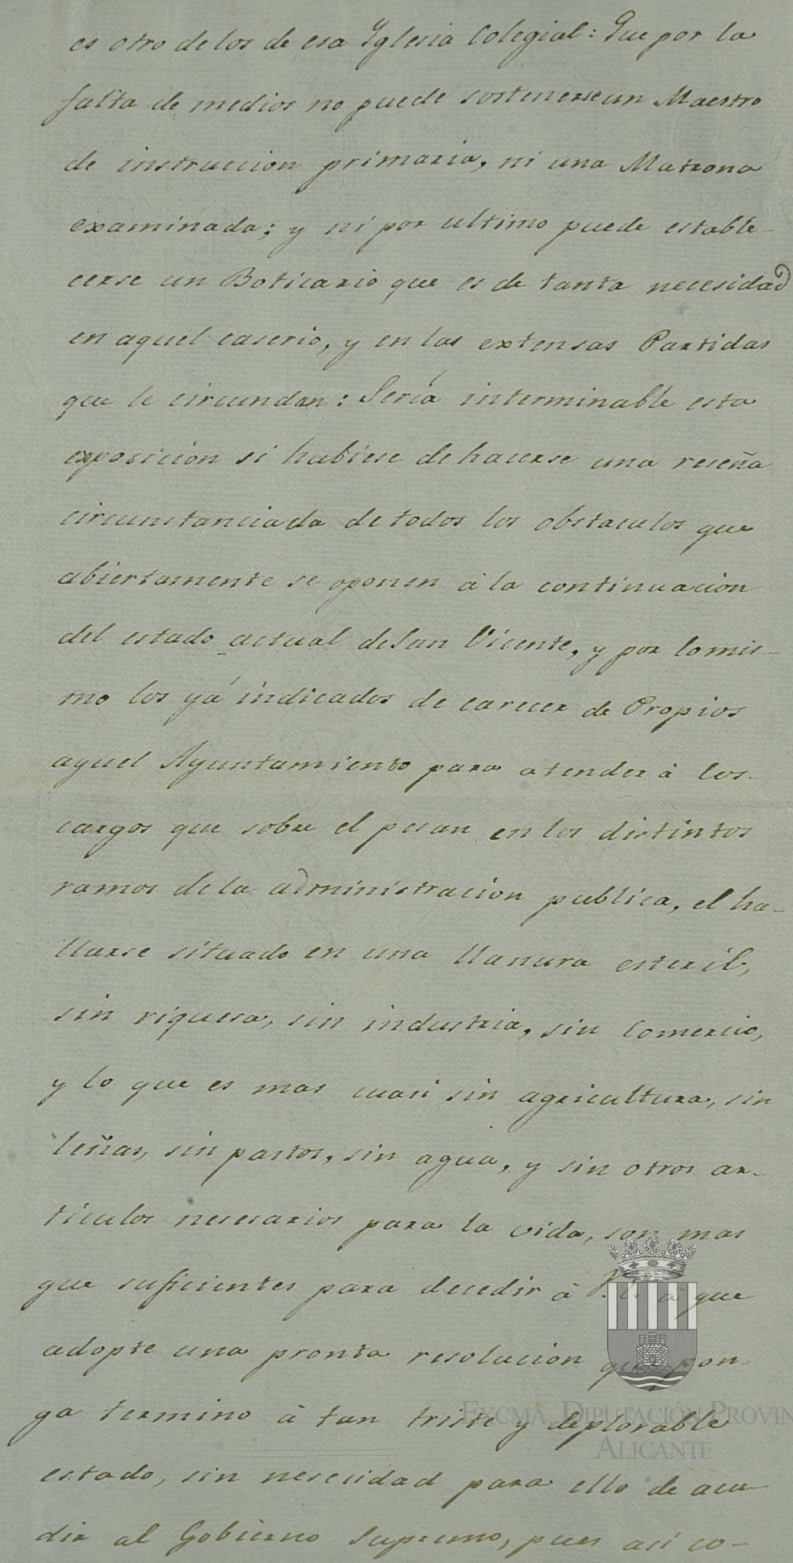 es otro de los de esa Yglesia Colegial: Que por la
falta de medios no puede sostenerse un Maestro
de instruccion primaria, ni una Matrona
examinada; y ni por ultimo puede estable-
cerse un Boticario que es de tanta necesidad
en aquel caserio, y en las extensas Partidas
que le circundan: Sería interminable esta
exposicion si hubiese de hacerse una reseña
circunstanciada de todos los obstaculos que
abiertamente se oponen à la continuacion
del estado actual de San Vicente, y por lo mis-
mo los yá indicados de carecer de Propios
aquel Ayuntamiento para atender à los
cargos que sobre el pesan en los distintos
ramos de la administracion publica, el ha-
llarse situado en una llanura esteril,
sin riquesa, sin industria, sin Comercio,
y lo que es mas cuasi sin agricultura, sin
leñas, sin pastos, sin agua, y sin otros ar-
ticulos nesesarios para la vida, son mas
que suficientes para decedir à V.E. a que
adopte una pronta resolucion que pon-
ga termino à tan triste y deplorable
estado, sin nesecidad para ello de acu
dir al Gobierno Supremo, pues asi co-
EXCMA. DIPUTACIÓN PROVIN
ALICANTE